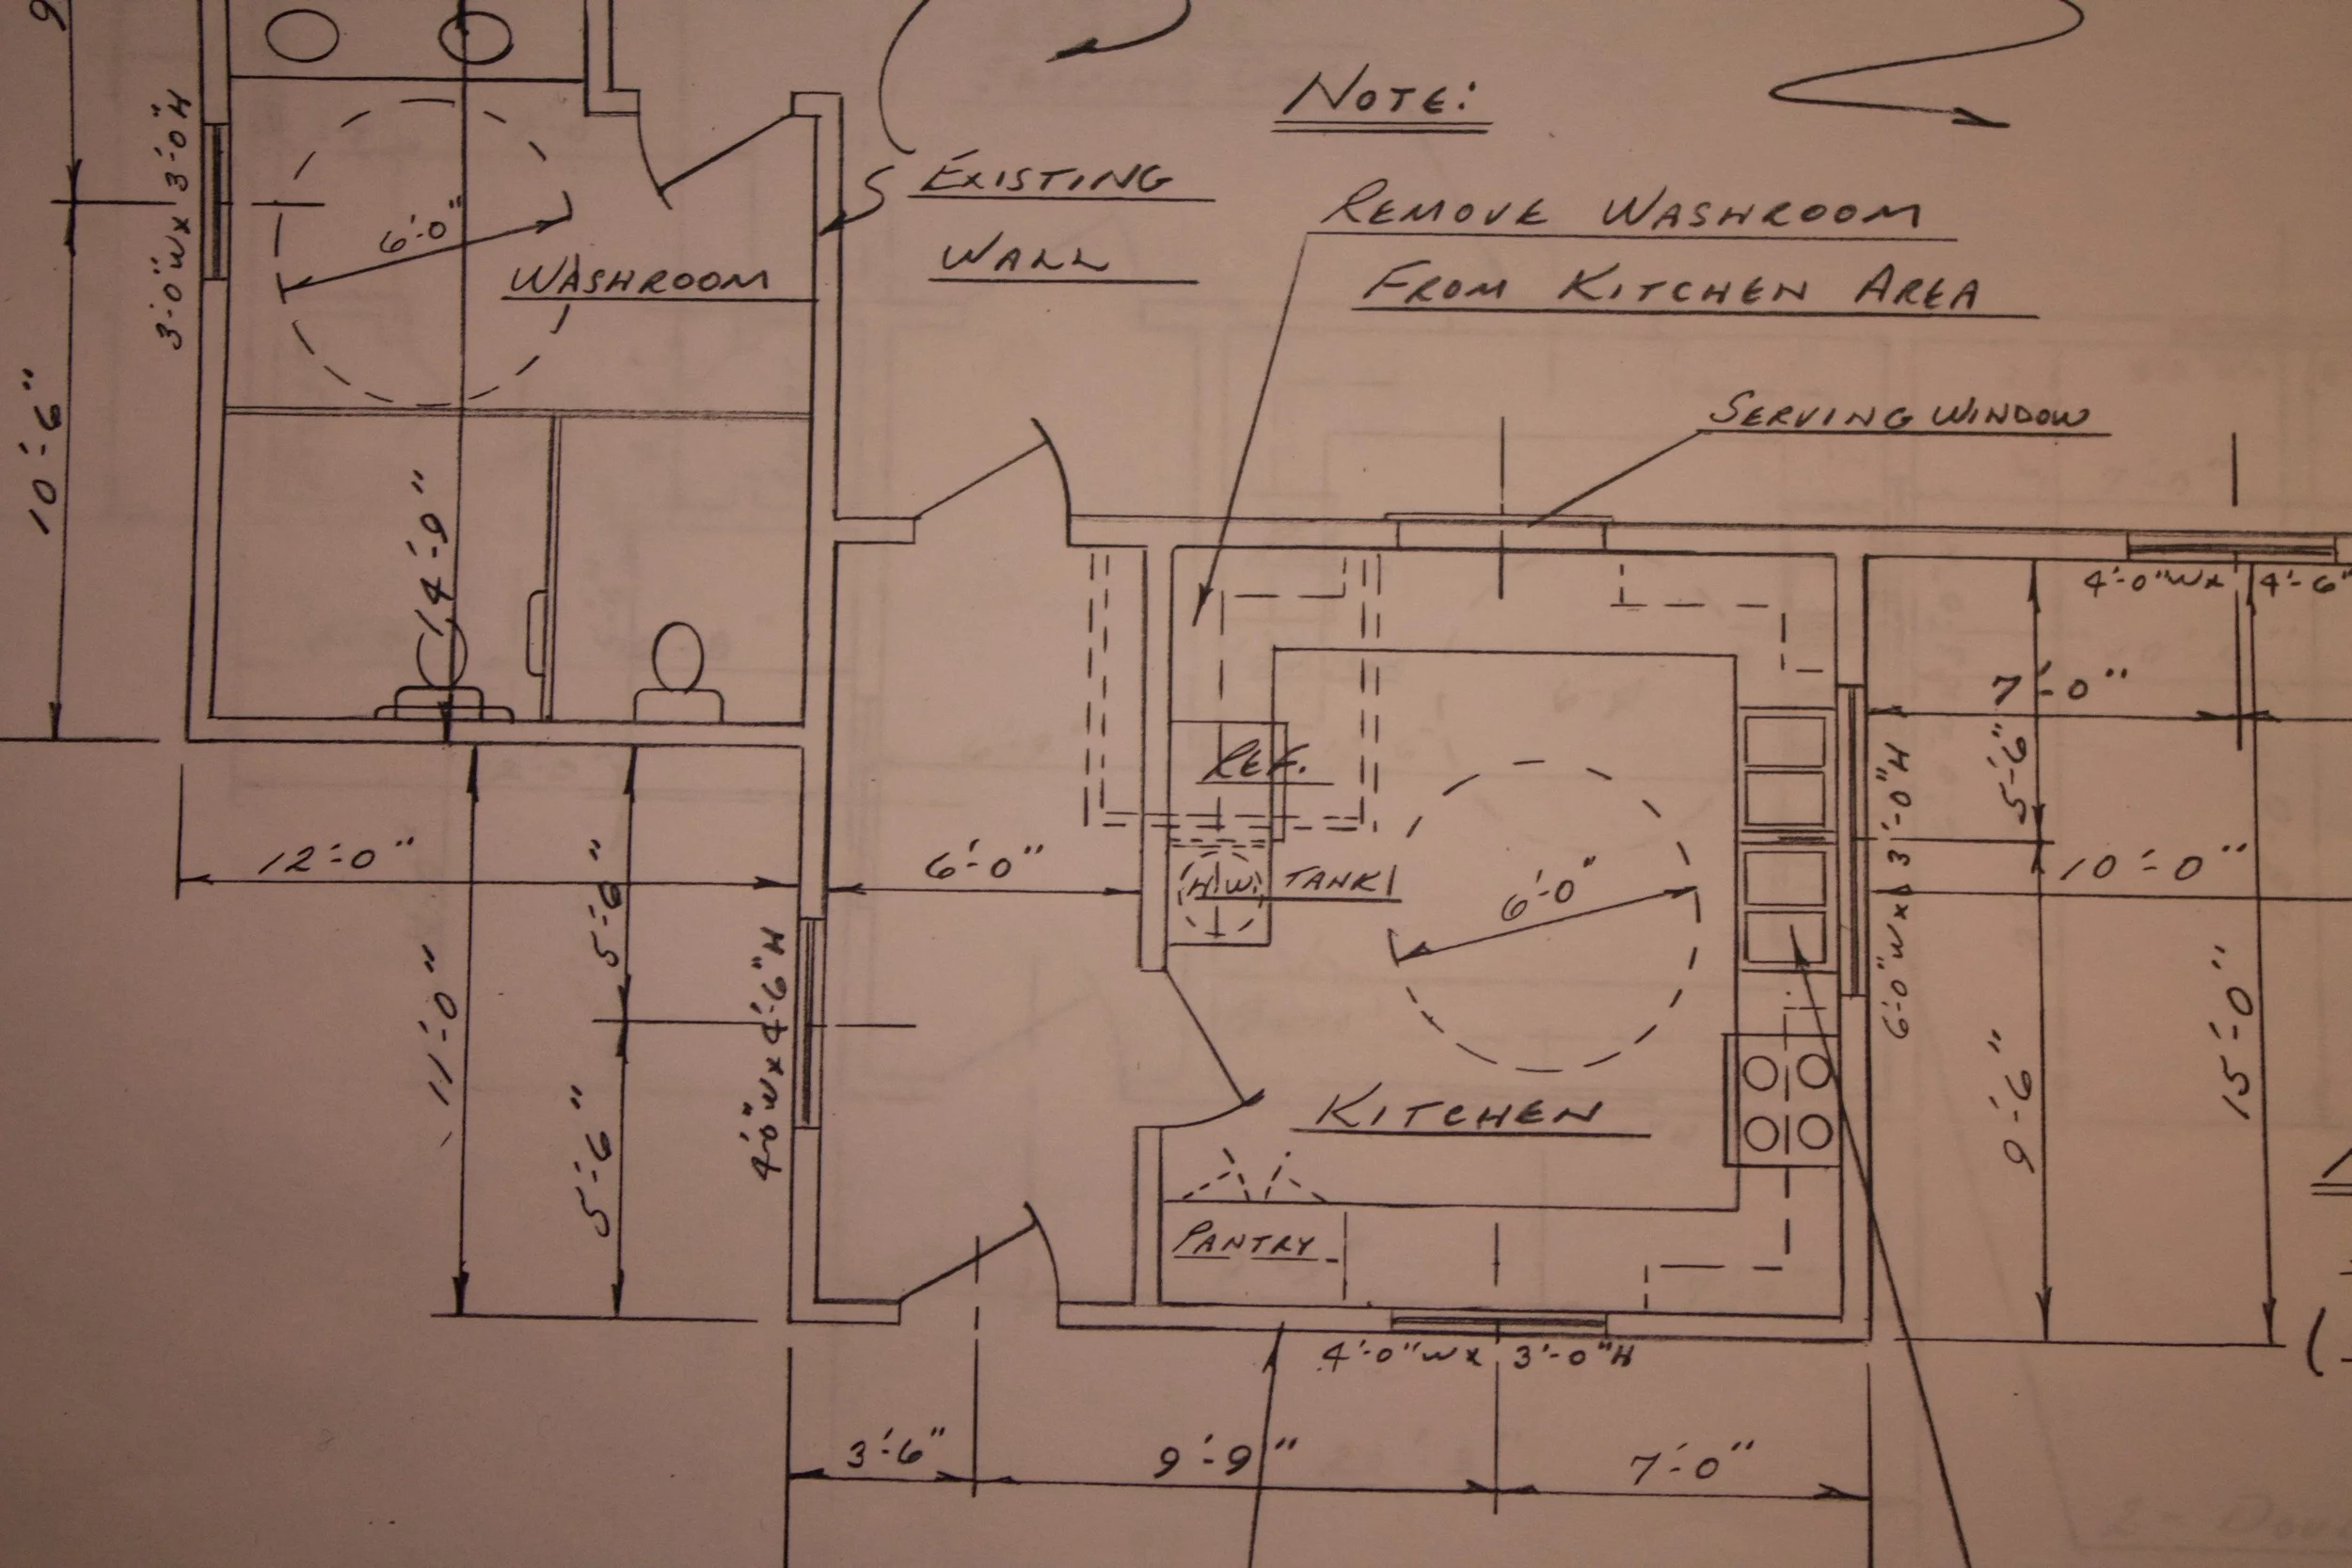 NOTE:
EXISTING
WALL
REMOVE WASHROOM
FROM KITCHEN AREA
3'-0"W x 3'-0"H
6'-0"
WASHROOM
SERVING WINDOW
10'-6"
14'-9"
4'-0"W x 4'-6"
7'-0"
REF.
5'-6"
6'-0"W x 3'-0"H
12'-0"
5'-6"
6'-0"
H.W. TANK
6'-0"
10'-0"
11'-0"
4'-0"W x 4'-6"H
15'-0"
9'-6"
KITCHEN
5'-6"
PANTRY
4'-0"W x 3'-0"H
3'-6"
9'-9"
7'-0"